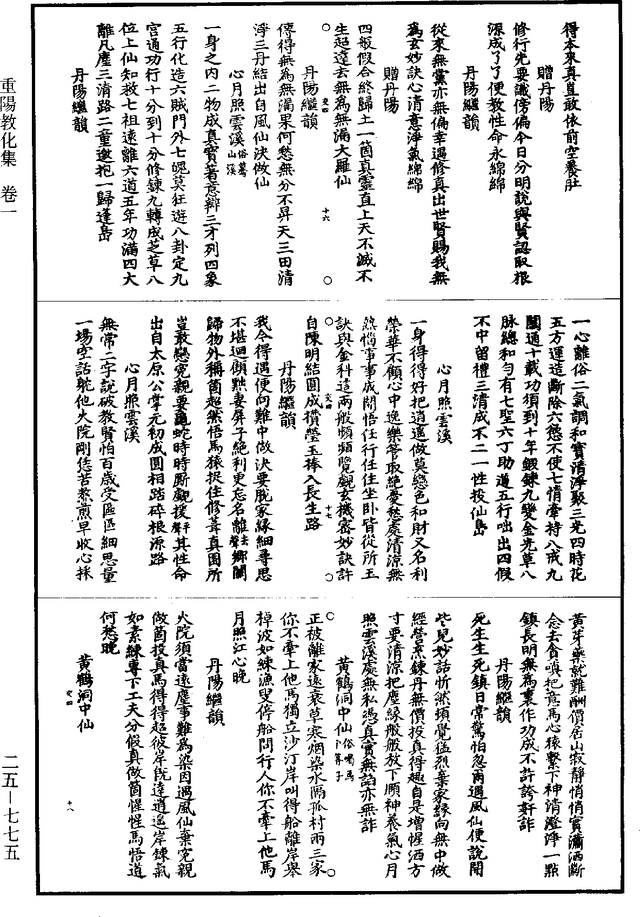 得本來真直敢依前空養肚
贈丹陽
修行先要識傍偏今日分明說與賢認取根
源成了了便教性命永綿綿
丹陽繼韻
從來無黨亦無偏幸遇修真出世賢賜我無
為玄妙訣心清意淨氣綿綿
贈丹陽
四般假合終歸土一箇真靈直上天不滅不
生超達去無為無漏大羅仙
十六
丹陽繼韻
傳得無為無漏果何愁無分不昇天三田清
淨三丹結出自風仙決做仙
心月照雲溪 俗驀山溪
一身之內二物成真寶著意辯三才列四象
五行化造六賊門外七魄莫狂遊八卦定九
宮通功行十分到十分修鍊九轉成芝草八
位上仙知救七祖遠離六道五年功滿四大
離凡塵三清路二童邀抱一歸蓬島
丹陽繼韻
一心離俗二氣調和寶清淨聚三光四時花
五方運造斷除六慾不使七情牽持八戒九
關通十載功須到十年鍜鍊九變金光草八
脉總和勻有七聖六丁助道五行咄出四假
不中留禮三清成不二一性投仙島
心月照雲溪
一身得得好把逍遙做莫戀色和財又名利
榮華不顧心中逸樂管取絕憂愁處清涼無
煩惱事事成開悟任行任住坐卧皆從所玉
訣與金科這兩般頻頻覽覷玄機密妙訣許
十七
自陳明結圓成攢瑩玉捧入長生路
丹陽繼韻
我今得遇便向難中做決要脫家緣細尋思
不堪迴顧㸃妻屏子絕利更忘名離去聲鄉關
歸物外稱箇超然悟馬猿捉住修葺真園所
豈敢戀寃親要龜蛇時時廝覷援平聲其性命
出自太原公掌元初成圓相踏碎根源路
心月照雲溪
無常二字說破教賢怕百歲受區區細思量
一場空話舵他火院剛恁苦熬煎早收心採
黃芽藥就難酬價居山寂靜悄悄實瀟洒斷
念去貪嗔把意馬心猿繫下神清澄淨一點
鎮長明無為裏作功成不許誇奸詐
丹陽繼韻
死生生死鎮日常驚怕忽爾遇風仙便說開
些兒妙話忻然頓覺猛烈棄家緣向無中做
經營烹鍊丹無價投真得趣自是增惺洒方
寸要清涼把塵緣般般放下頤神養氣心月
照雲溪處無私憑真實無諂亦無詐
黃鶴洞中仙 俗喝馬卜算子
正被離家遠衰草寒烟染水隔孤村兩三家
你不牽上他馬獨立沙汀岸叫得船離岸舉
棹波如練漁叟停船問行人你不牽上他馬
月照江心晚
丹陽繼韻
火院須當遠塵事難為染因遇風仙棄寃親
做箇投真馬得得超彼岸旣達逍遙岸鍊氣
如素練專下工夫分假真做箇惺惺馬悟道
何愁晚
十八
黃鶴洞中仙
重陽教化集 卷一
二五—七七五